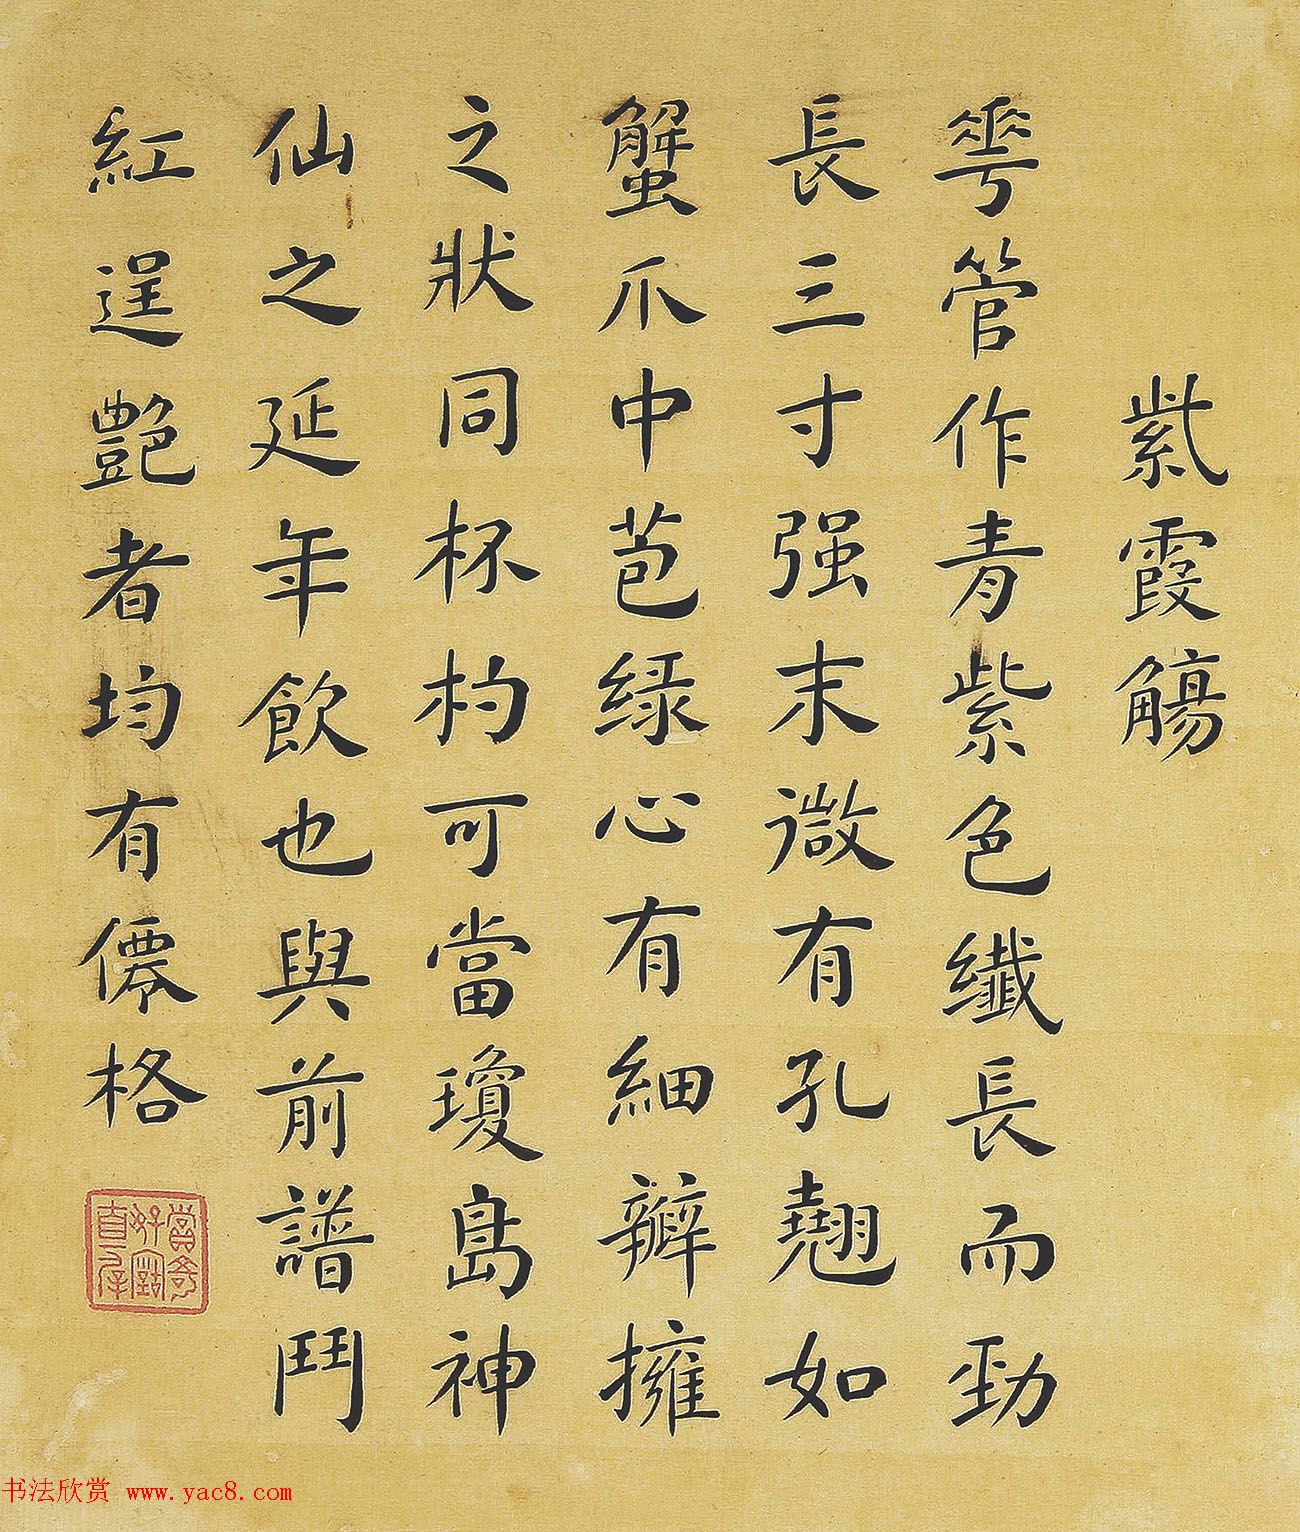 紫霞觴
花管作青紫色纖長而勁
長三寸强末微有孔翹如
蟹爪中苞緑心有細瓣擁
之狀同杯杓可當瓊島神
仙之延年飲也與前譜鬥
紅逞艷者均有僊格
书法欣赏 www.yac8.com